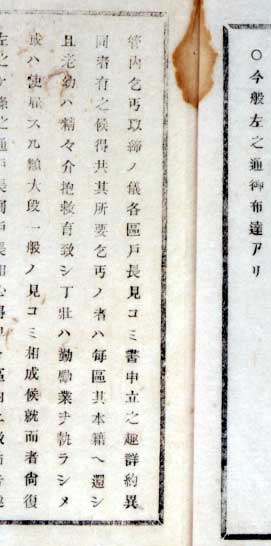 ○今般左之通御布達アリ
管内乞丐取締ノ儀各區戸長見コミ書申立之趣詳約異
同者有之候得共其所要乞丐ノ者ハ毎區其本籍ヘ還シ
且老幼ハ精々介抱救育致シ丁壯ハ勤勵業ヲ執ラシメ
或ハ使雇ス元類大段一般ノ見コミ相成候就而者尙復